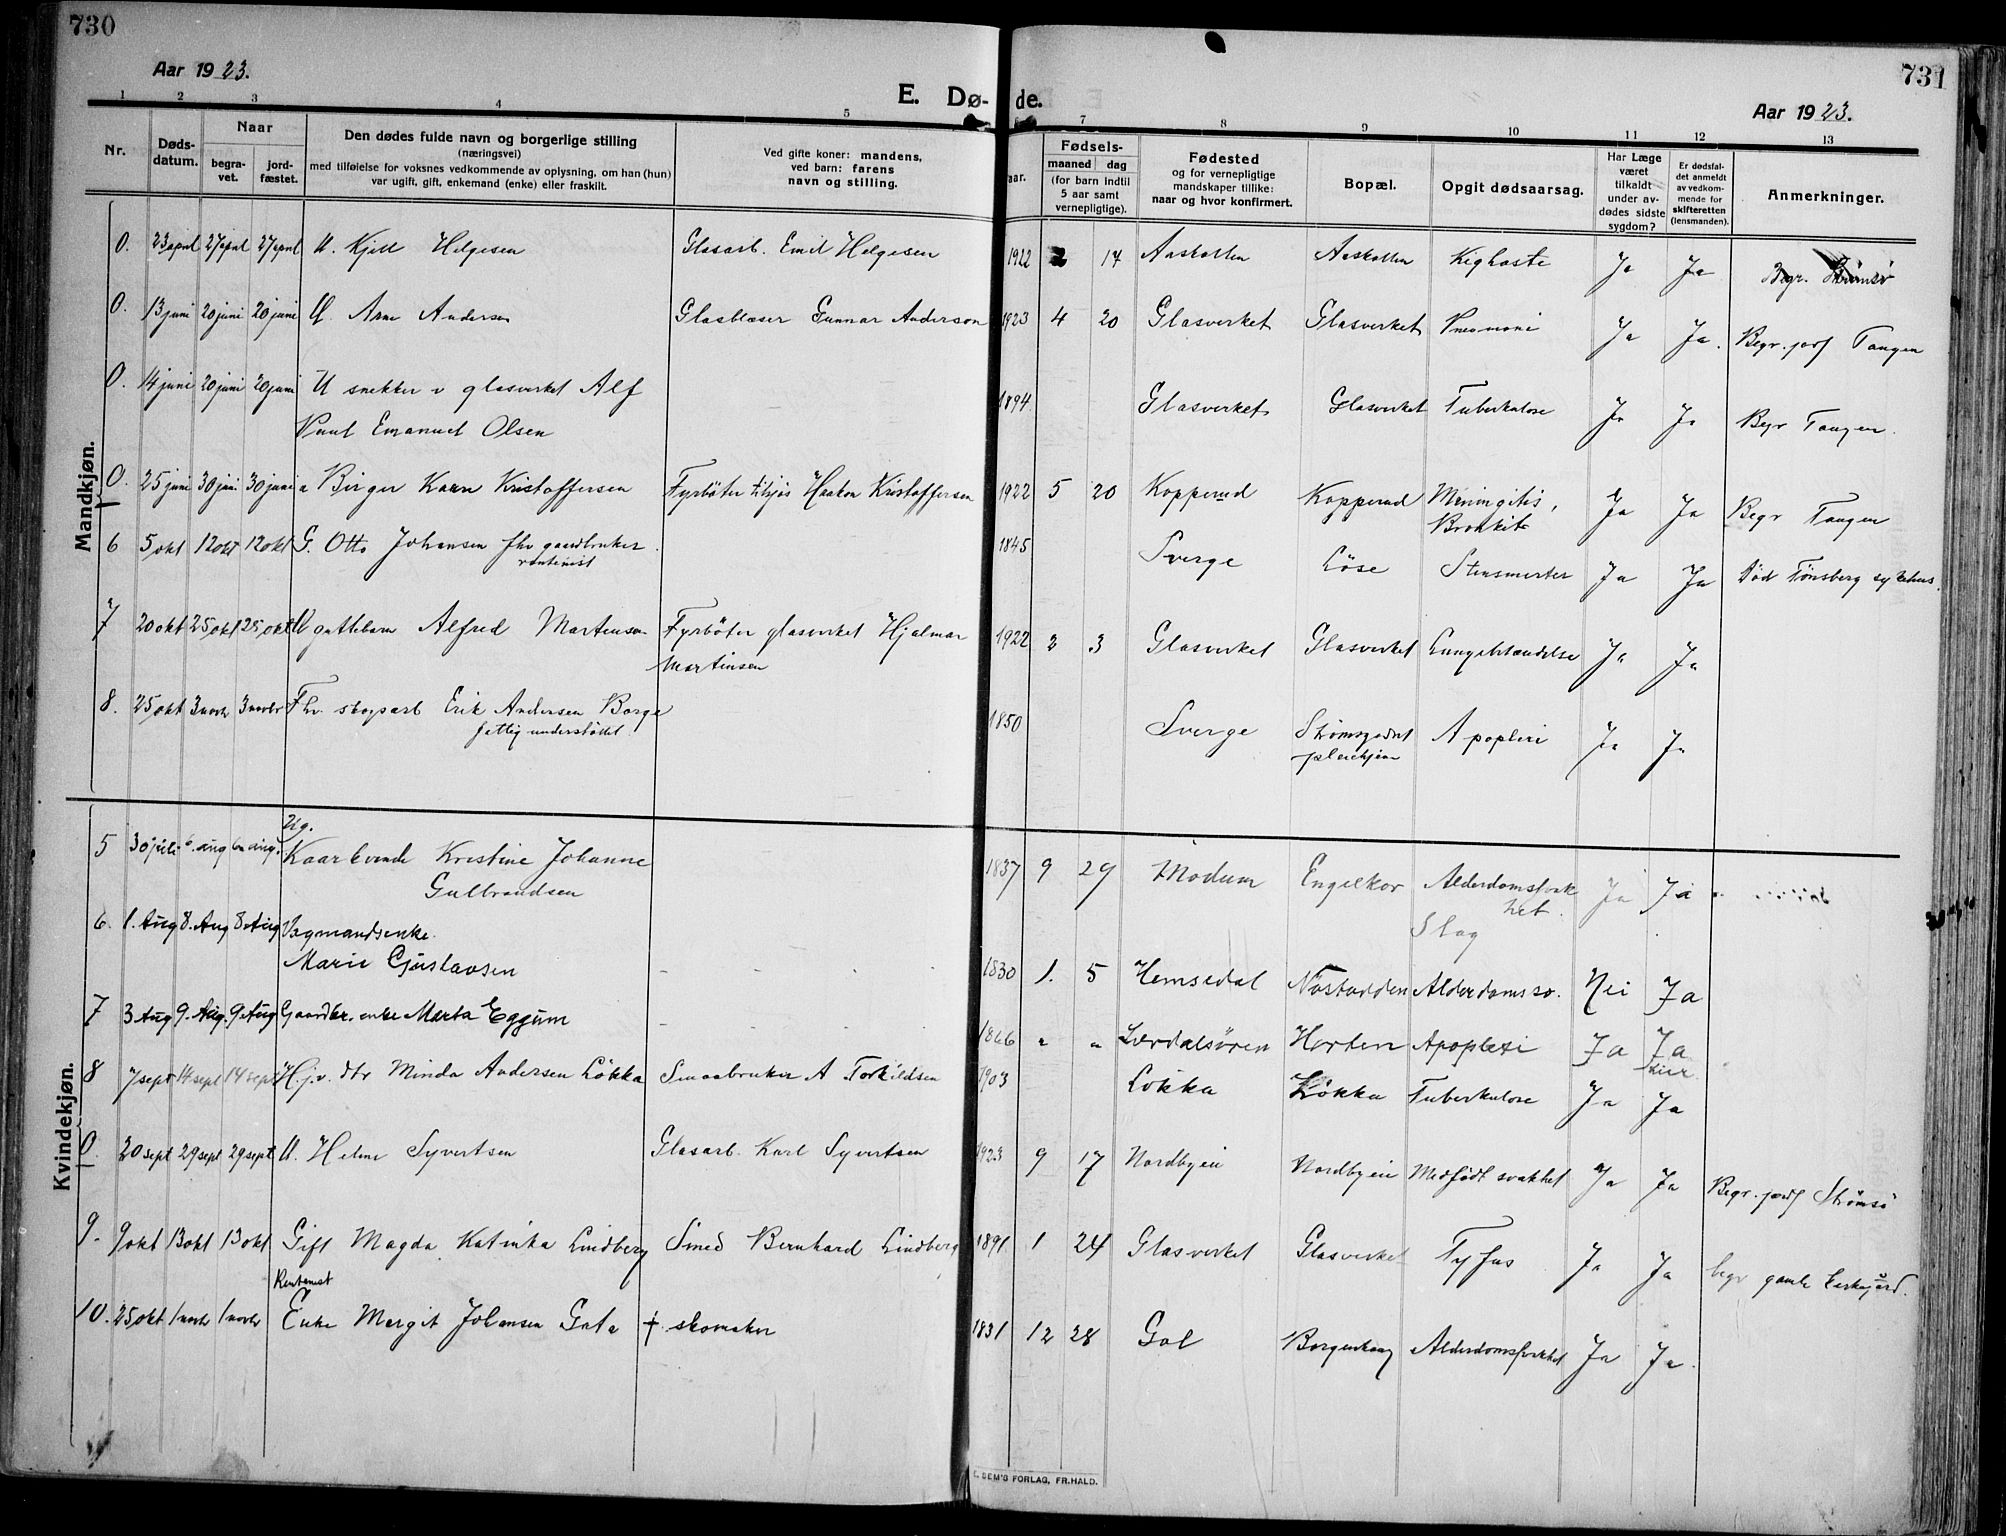 730
Aar 1923.
E. Dø-
de.
731
Aar 1923.
1 2 3 4 5 7 8 9 10 11 12 13
Nr.
Døds-
datum.
Naar
begra-
vet.
jord-
fæstet.
Den dødes fulde navn og borgerlige stilling
(næringsvei)
med tilføielse for voksnes vedkommende av oplysning, om han (hun)
var ugift, gift, enkemand (enke) eller fraskilt.
Ved gifte koner: mandens,
ved barn: farens
navn og stilling.
aar.
Fødsels-
maaned dag
(for barn indtil
5 aar samt
vernepligtige).
Fødested
og for vernepligtige
mandskaper tillike:
naar og hvor konfirmert.
Bopæl.
Opgit dødsaarsag.
Har Læge
været
tilkaldt
under av-
dødes sidste
sygdom?
Er dødsfal-
det anmeldt
av vedkom-
mende for
skifteretten
(lensmanden).
Anmerkninger.
Mandkjøn.
0. 23 april 27 april 27 april U. Kjell Helgesen Glasarb. Emil Helgesen 1922 14 Aaskollen Aaskollen Kighoste Ja Ja Begr. Strømsø
0. 13 juni 20 juni 20 juni U. Arne Andersen Glasblæser Gunnar Anderson 1923 4 20 Glasverket Glasverket Pneumoni Ja Ja. Begr. jordf Tangen
0. 14 juni 20 juni 20 juni U snekker v glasverket Alf 1894 Glasverket Glasverket Tuberkulose Ja Ja Begr Tangen.
Paul Emanuel Olsen
0. 25 juni 30 juni 30 juni Birger Kaare Kristoffersen Fyrbøter tilsjøs Haakon Kristoffersen 1922 5 20 Kopperud Kopperud Meningitis, Ja Ja Begr Tangen
Bronkit
6 5 okt 12 okt 12 okt G. Otto Johansen fhv gaardbruker 1845 Sverge Løse Ja Ja Død Tønsberg sykehus.
rentenist
7 20 okt 25 okt 25 okt U guttebarn Alfred Martinsen Fyrbøter glasverket Hjalmar 1922 2 3 Glasverket Glasverket Lungebetændelse Ja Ja
Martinsen
8. 25 okt 3 novbr 3 novbr Fhv. skogsarb Erik Andersen Borge 1850 Sverge Strømsgodset Apoplexi Ja Ja
fattig understøttet pleiehjem
Kvindekjøn.
Ug.
5 30 juli 6. aug 6 aug. Kaarkvinde Kristine Johanne 1837 9 29 Modum Engelkor Alderdomssvak Ja Ja
Gulbrandsen het.
Slag
6. 1. Aug 8. Aug 8 Aug Vognmandsenke.
Marie Gustavsen - - - 1830 1. 5 Hemsedal Nøstodden Alderdomssv. Nei Ja
7 3 Aug 9. Aug. 9 Aug Gaardbr. enke Marta Eggum - - - 1866 " " Lærdalsøren Horten Apoplexi Ja Ja
Lier
8 7 sept 14 sept 14 sept Hj. v. dtr Minda Andersen Løkka Smaabruker A Torkildsen 1903 Løkka Løkka Tuberkulose Ja Ja
0. 20 sept 29 sept 29 sept U. Helene Syvertsen Glasarb. Karl Syvertsen 1923 9 17 Nordbyeie Nordbyeie Medfødt svakhet Ja Ja Begr. jordf Strømsø
9. 9 okt 13 okt 13 okt Gift Magda Katinka Lindberg Smed Bernhard Lindberg 1891 1 24 Glasverket Glasverket Tyfus Ja Ja begr gamle kirkegaard.
Rentenist
10. 25 okt 1 novbr 1 novbr Enke Margit Johansen Gata † skomaker 1831 12 28 Gol Alderdomssvakhet Ja Ja.
SEM'S FORLAG, FR.HALD.